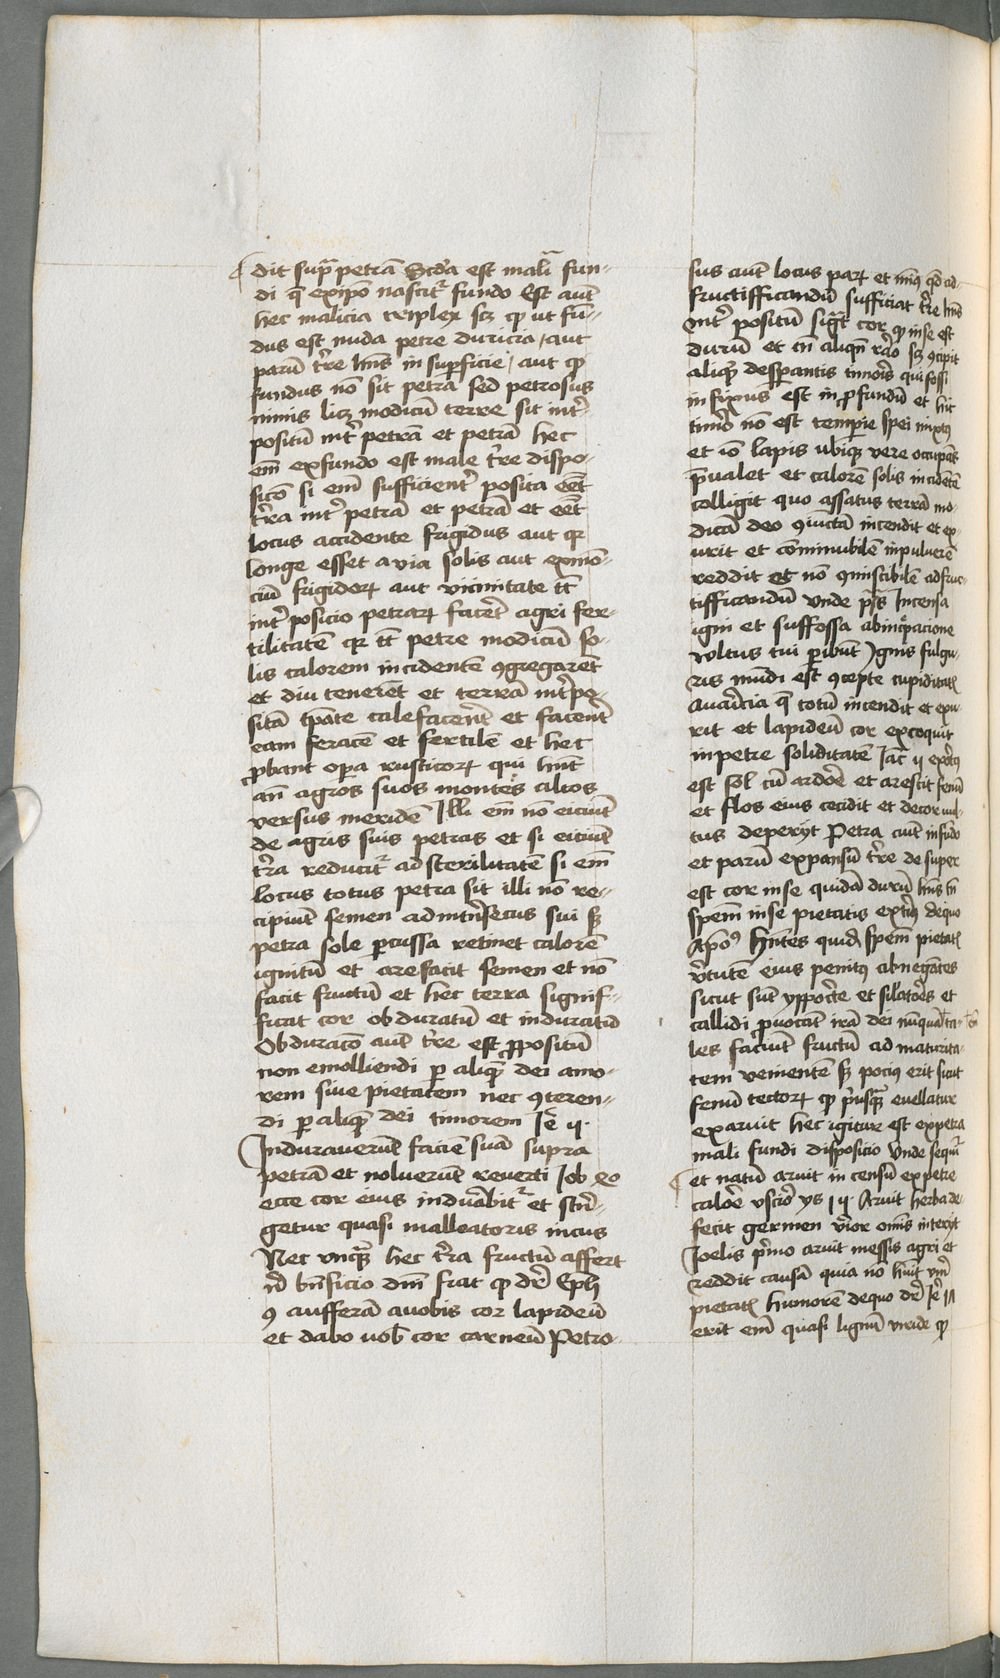 dit sup̃ petrã Scd̃a est mali᷑ fun-
di q̃ ex ip̃o nascit᷑ fundo Est aut̃
hec malicia triplex scꝫ ꝙ ut fũ-
dus est nuda petre duricia / aut
parũ t̃re hñs in sup̲ficie / aut ꝙ
fundus nõ sit petra sed petrosus
nimis licꝫ modicũ terre sit int̃-
positũ int̃ petrã et petrã hec
em̃ ex fundo est male t̃re dispo-
sicõ si em̃ sufficient̃ posita eẽt
t̃ra int̃ petrã et petrã et eẽt
locus accidente frigidus aut qꝛ
longe esset a via solis aut
frigidoꝝ aut vicinitate tñ
int̃posicio petraꝝ facẽt agri fer-
tilitatẽ qꝛ tñ petre modicũ so-
lis calorem incidentẽ ꝯgregarẽt
et diu tenerẽt et terrã int̃po-
sitã calefacerẽt et facerẽt
eam feracẽ et fertilẽ et hec
ꝓbant oꝑa rusticoꝝ qui hñt
agros suos montes altos
versus meridẽ Illi em̃ nõ eiciũt
de agris suis petras et si eiciũt
t̃ra reducit᷑ ad sterilitatẽ si em̃
locus totus petra sit illi nõ re-
cipiũt semen ad int̃secus sui sꝫ
petra sole ꝑcussa retinet calorẽ
ignitũ et arefacit semen et nõ
facit fructũ et hec terra signif-
ficat cor obduratũ et induratũ
Obduracõ aut̃ t̃re est ꝓpositũ
non emolliendi ꝑ aliqꝫ dei amo-
rem siue pietatem nec ꝯteren-
di ꝑ aliqꝫ dei timorem Je᷑ ij
Indurauerũt faciẽ suã supra
petrã et noluerũt reuerti Job
ecce cor eius indurabit᷑ et strĩ-
getur quasi malleatoris incus
Nec vnqꝫ hec t̃ra fructũ affert
n̄ bñficio dm̃ fiat ꝙ dr̃
ꝯ aufferã a uobis cor lapideũ
et dabo uob̃ cor carneũ Petro-
sus aut̃ locus paꝝ et ad
fructifficandũ sufficiat t̃re hñs
int̃ positũ sigt̃ cor ꝙ in se est
durũ et scꝫ ꝯcipit
aliqꝫ desꝑantis timoris qui fossi
infixus est in ꝓfundũ et hic
timor nõ est temꝑie spei mixtus
et iõ lapis ubiqꝫ vere occupãs
p̃ualet et calorẽ solis incidentẽ
colligit quo assatus terrã mo-
dicã deo ꝯiũctã incendit et ex-
urit et cõminubilẽ in pulverẽ
reddit et nõ ꝯmiscibilẽ ad fruc-
tifficandũ vnde ps̃ Incensa
igni et suffossa ab increpacione
vultus tui ꝑibũt Ignis fulgu-
ris mũdi est ꝯcepte cupiditat̃
auaricia q̃ totũ incendit et exu-
rit et lapideũ cor excoquit
in petre soliditatẽ Jac̃
est sol cũ ardorẽ et arescit fenũ
et flos eius cecidit et decor uul-
tus deperijt Petra aut̃ in fũdo
et parũ expansũ t̃re desuper
est cor in se quidã durũ hñs tñ
spem̃ in se pietatis ext̃ius de quo
apõs Hñtes quid̃ spem̃ pietat̃
ṽtutẽ eius penitus abnegãtes
sicut sũt yppoc̃te et sil̃atores et
callidi ꝓuocãt irã dei nũquã ta-
les faciũt fructũ ad maturita-
tem venientẽ sꝫ pocius erit sicut
fenũ tectoꝝ ꝙ p̃usqꝫ euellatur
exaruit hec igitur est ex petra
mali fundi disposicio Vnde sequit᷑
et natũ aruit incensũ ex petre
calorẽ ys Aruit herba de
fecit germen viror om̃is interijt
Joelis p̃mo aruit messis agri et
reddit causã quia nõ hũit
pietat̃ humorẽ de quo dr̃ Je᷑
erit em̃ quasi lignũ viride ꝙ